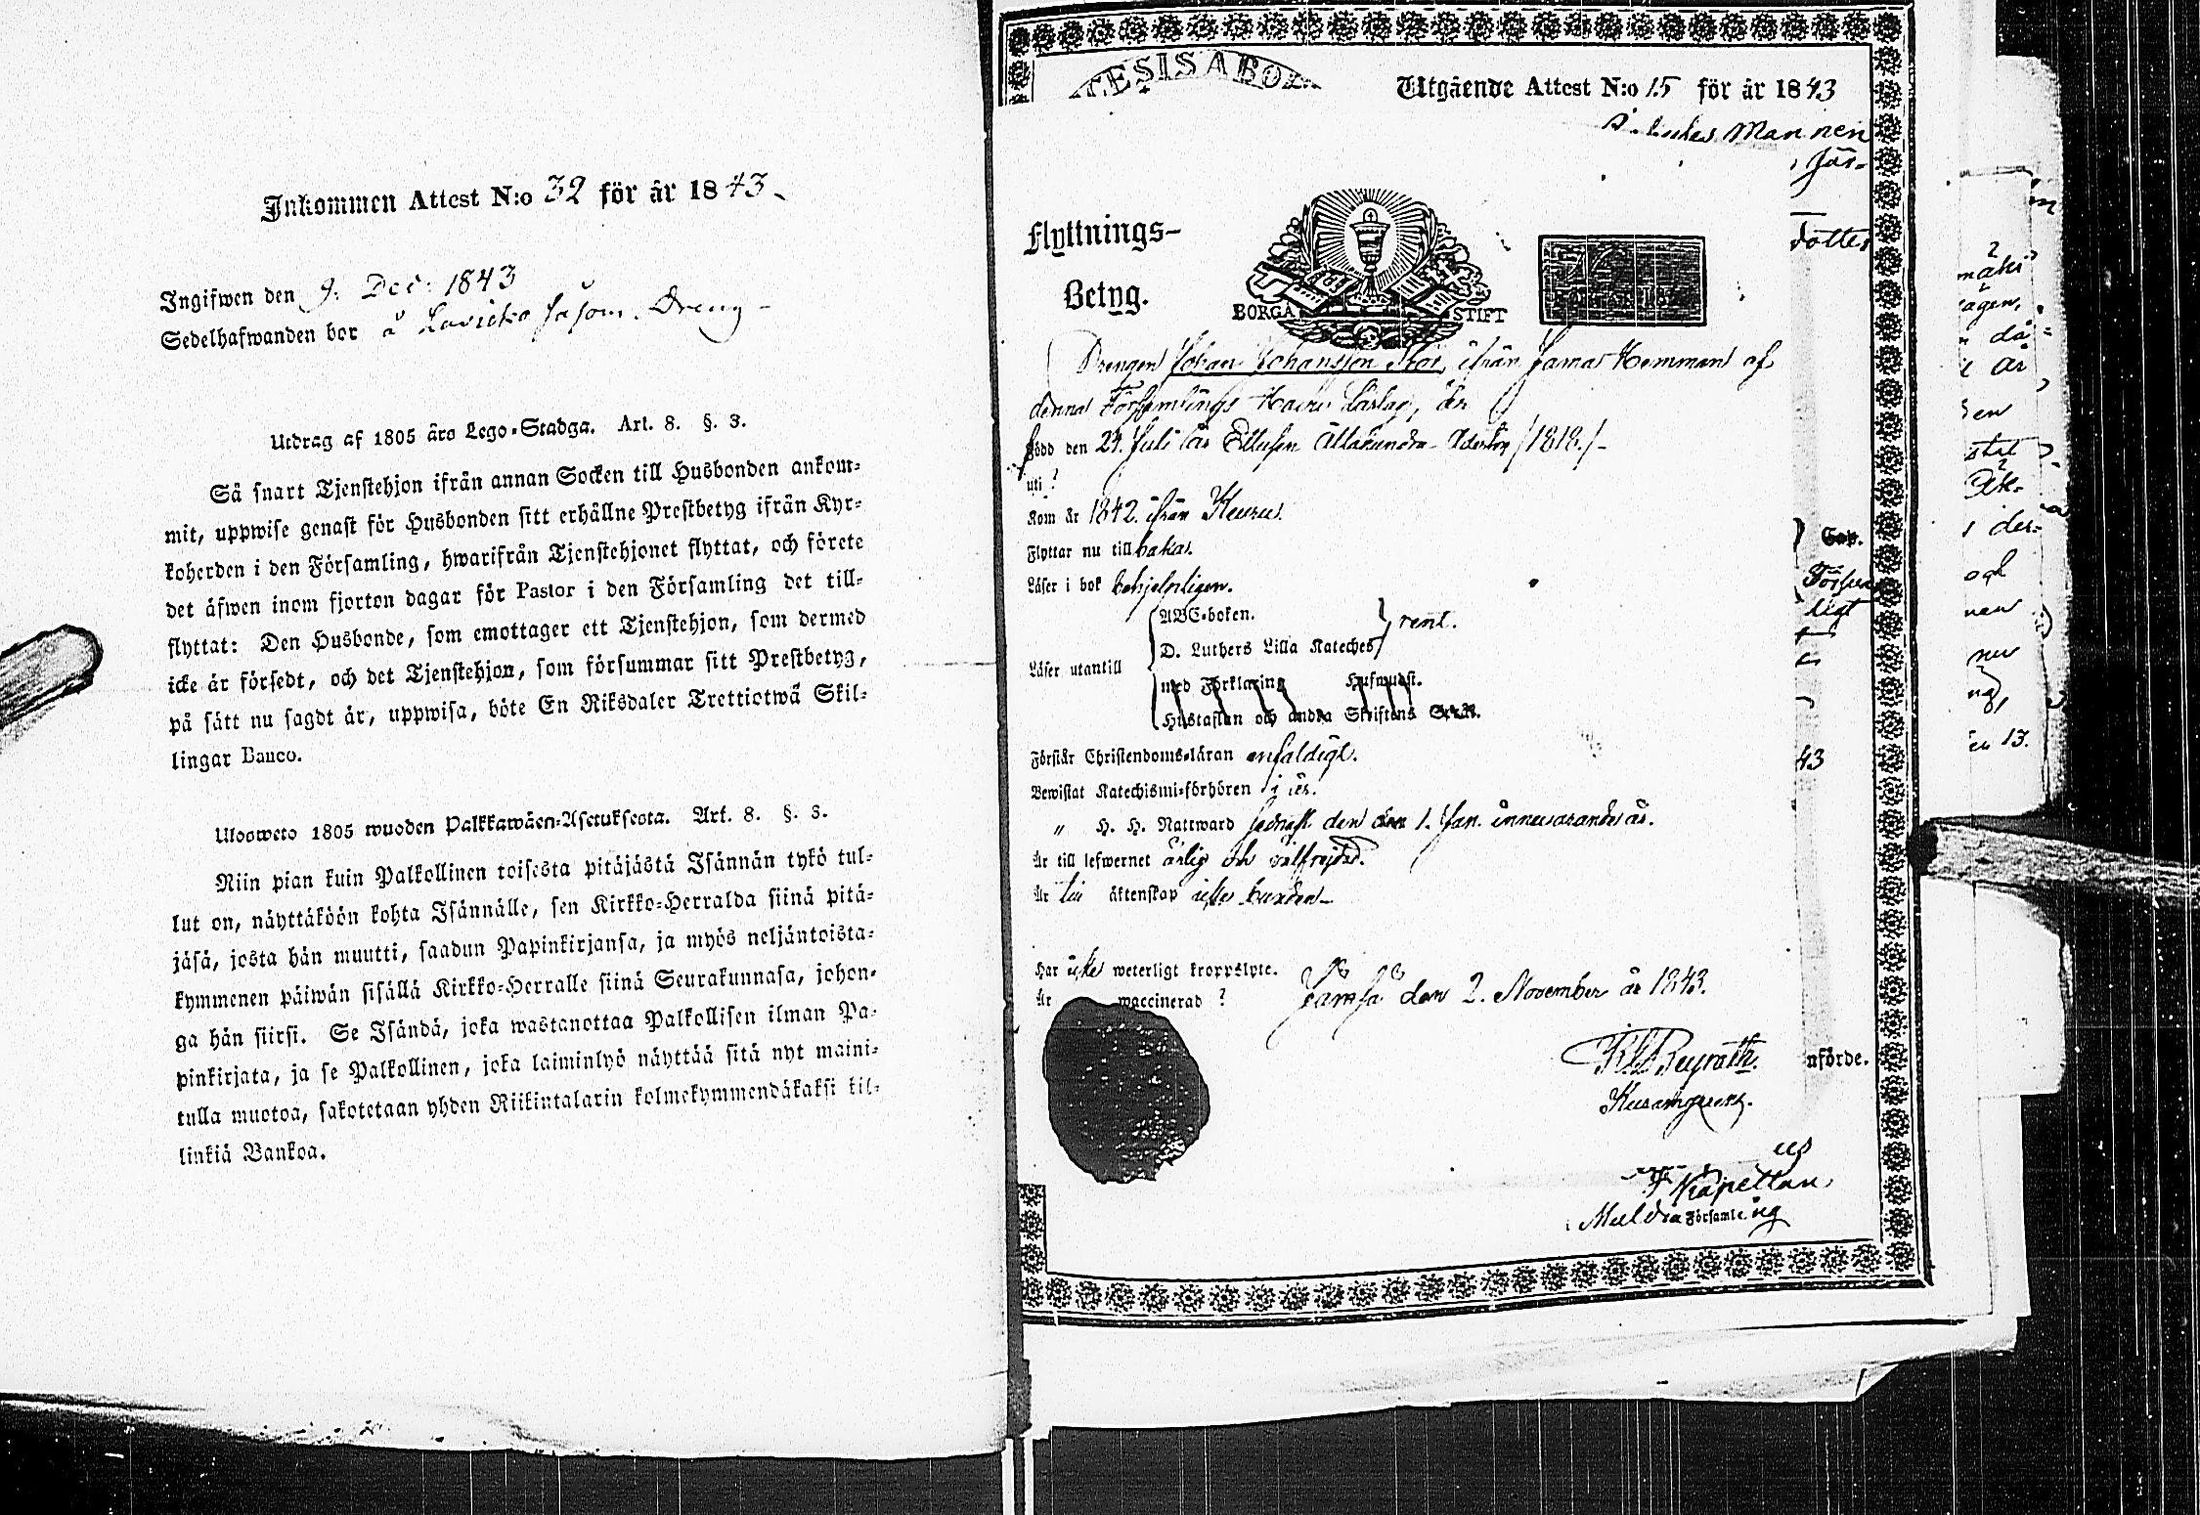 Inkommen Attest N:o 32 för år 1843
Ingifwen den 9. Dec: 1843
Sedelhafwanden bor å såsom Dreng
Utdrag af 1805 års Lego-Stadga. Art. 8. §. 3.
Så snart Tjenstehjon ifrån annan Socken till Husbonden ankom-
mit, uppwise genast för Husbonden sitt erhållne Prestbetyg ifrån Kyr-
koherden i den Församling, hwarifrån Tjenstehjonet flyttat, och förete
det äfwen inom fjorton dagar för Pastor i den Församling det till-
flyttat: Den Husbonde, som emottager ett Tjenstehjon, som dermed
icke är försedt, och det Tjenstehjon, som försummar sitt Prestbetyg,
på sätt nu sagdt är, uppwisa, böte En Riksdaler Trettiotwå Skil-
lingar Banco.
Ulosweto 1805 wuoden Palkkawäen-Asetuksesta. Art. 8. §. 3.
Niin pian kuin Palkollinen toisesta pitäjästä Isännän tykö tul-
lut on, näyttäköön kohta Isännälle, sen Kirkko-Herralda siinä pitä-
jäsä, josta hän muutti, saadun Papinkirjansa, ja myös neljäntoista-
kymmenen päiwän sisällä Kirkko-Herralle siinä Seurakunnasa, johon-
ga hän siirsi. Se Isändä, joka wastanottaa Palkollisen ilman Pa-
pinkirjata, ja se Palkollinen, joka laiminlyö näyttää sitä nyt maini-
tulla muotoa, sakotetaan yhden Riikintalarin kolmekymmendäkaksi kil-
linkiä Bankoa.
Utgående Attest N:o 15 för år 1843
Mannen
Flyttnings-
Betyg.
BORGÅ STIFT
Drengen Johan Johansson ifrån Hemman af
denna Församlings är
född den 24. Juli år Ettusen Åttahundra Aderton /1818./
uti ?
Kom år 1842. ifrån Keuru.
Flyttar nu tillbaka.
Läser i bok behjelpligen.
Läser utantill
ABC-boken.
D. Luthers Lilla Kateches
rent.
med Förklaring Hufwudst.
Hustaflan och andra Skriftens
Förstår Christendoms-läran enfaldigt.
Bewistat Katechismi-förhören i år.
" H. H. Nattward sednast den 1. Jan. innevarande år.
Är till lefwernet ärlig och välfrejdad.
Är till äktenskap icke bunden
Har icke weterligt kroppslyte.
Är waccinerad ?
Jämsä den 2. November år 1843.
nförde.
Kapellan
Församling